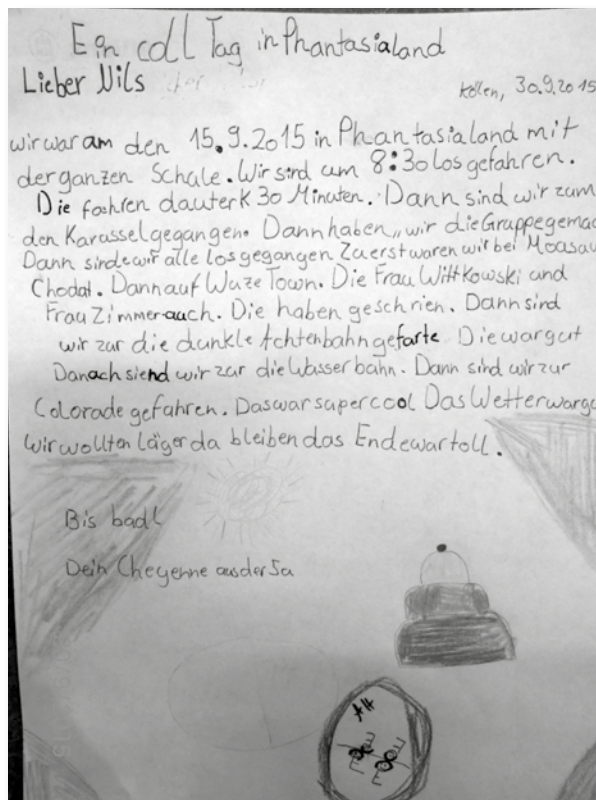 Ein coll Tag in Phantasialand
Lieber Nils
Köllen, 30.9.2015
wir war am den 15.9.2015 in Phantasialand mit
der ganzen Schule. Wir sind um 8:30 los gefahren.
Die fahren dauterk 30 Minuten. Dann sind wir zum
den Karussel gegangen. Dann haben wir die Gruppe gemac
Dann sind wir alle los gegangen Zuerst waren wir bei Moasau
Chodal. Dann auf Wuze Town. Die Frau Wittkowski und
Frau Zimmer auch. Die haben geschrien. Dann sind
wir zur die dunkle Achtenbahn gefarte Die war gut
Danach siend wir zur die Wasserbahn. Dann sind wir zur
Colorade gefahren. Das war super cool Das Wetter war gu
Wir wollten läger da bleiben das Ende war toll.
Bis badl
Dein Cheyenne aus der 5a
AH